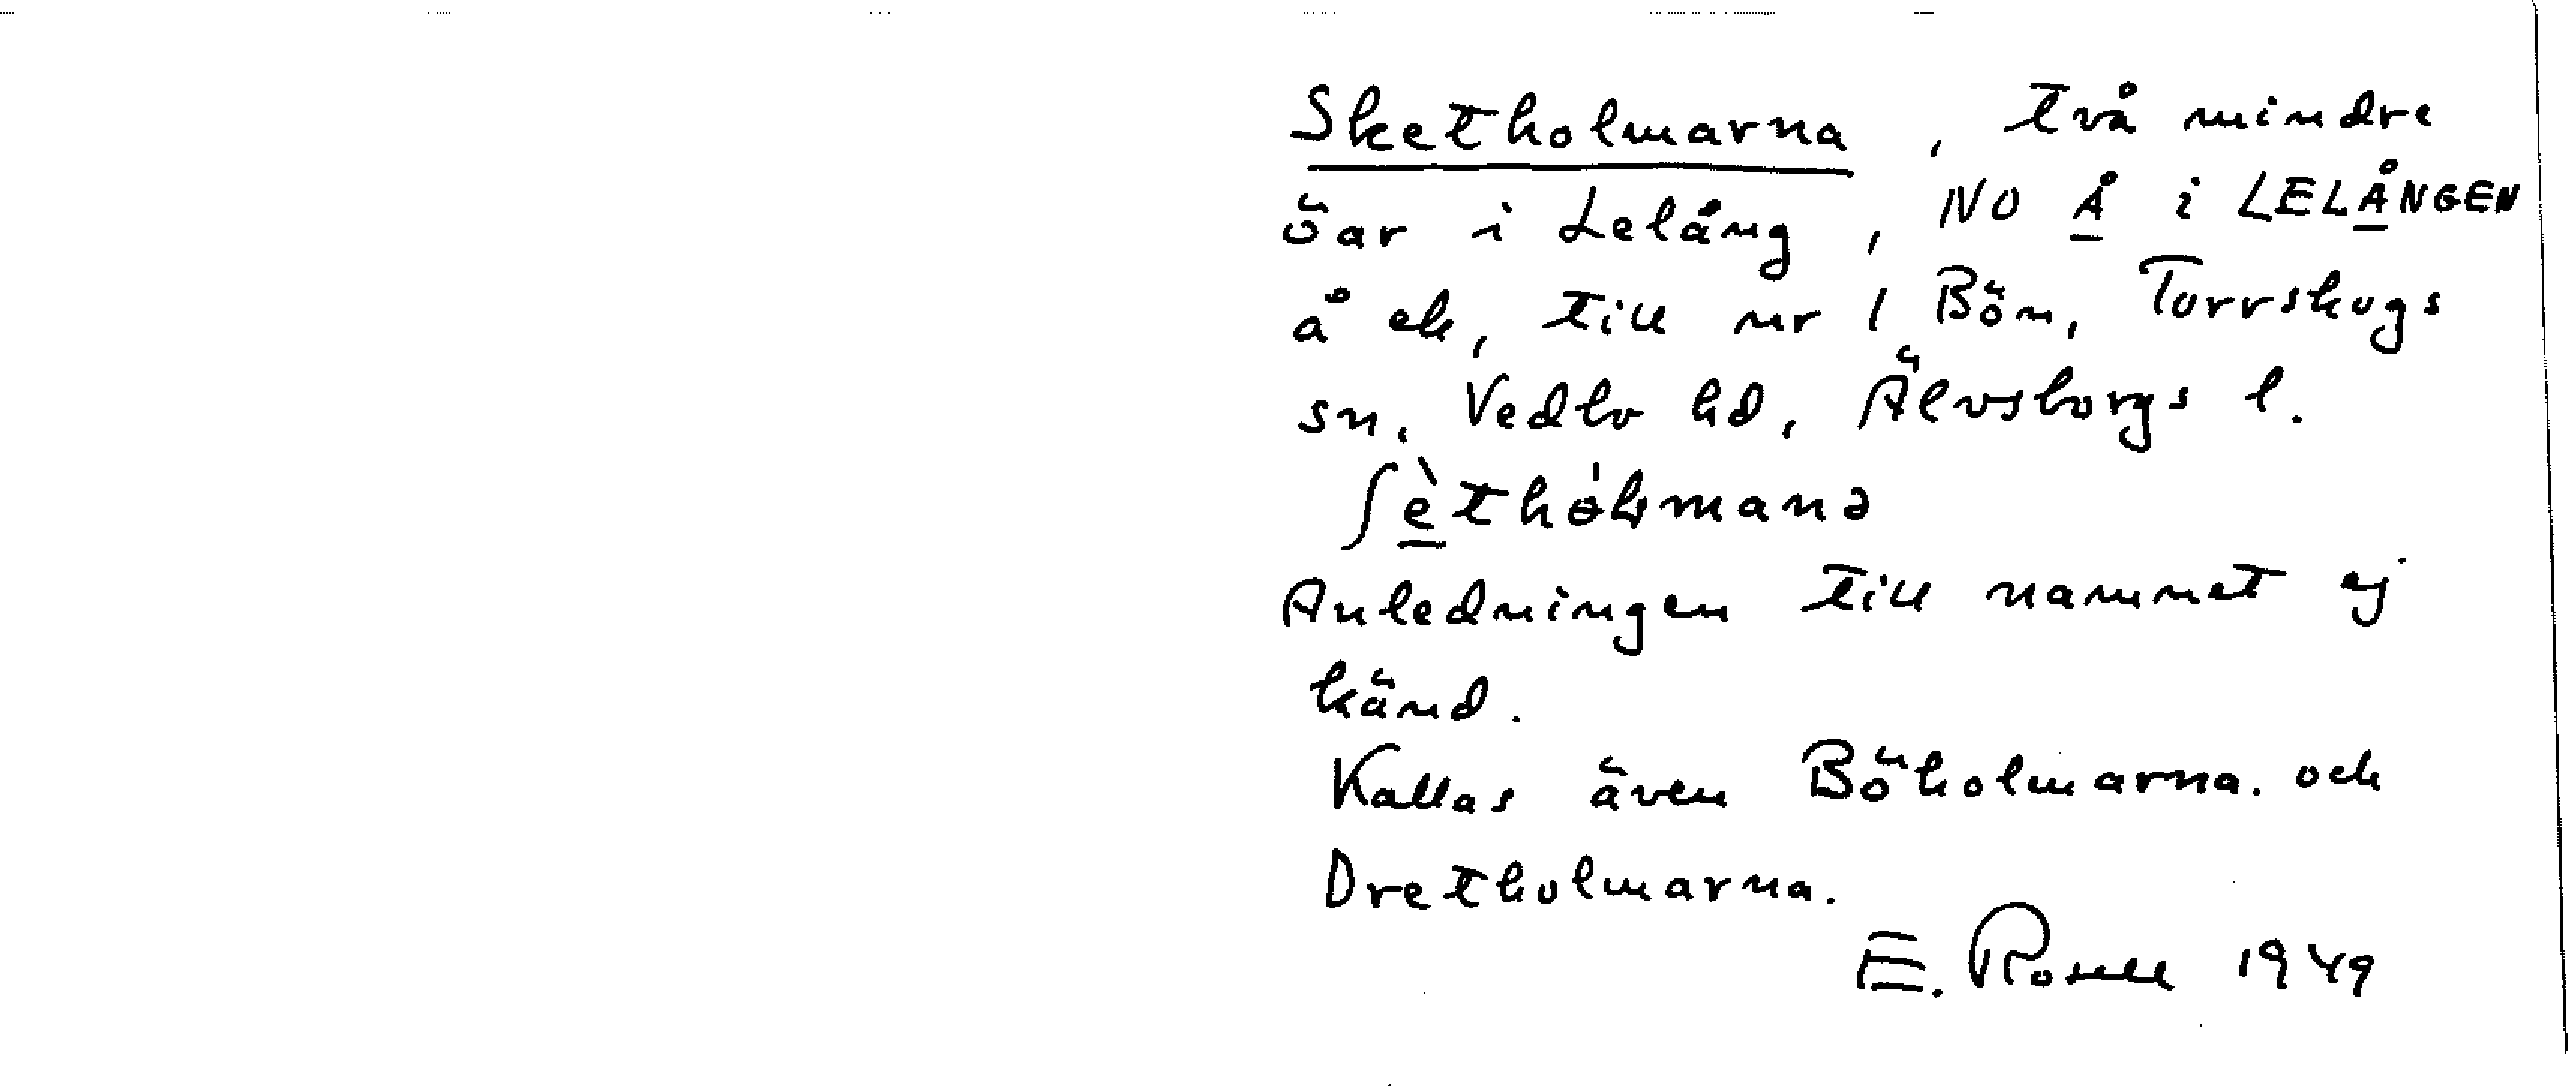 Sketholmarna, två mindre
öar i Lelång, NO Å i LELÅNGEN
å ek, till nr 1 Bön, Torrskogs
sn, Vedbo hd, Älvsborgs l.
Anledningen till namnet ej
känd.
Kallas även Böholmarna. och
Dretholmarna.
E. Rosell 1949